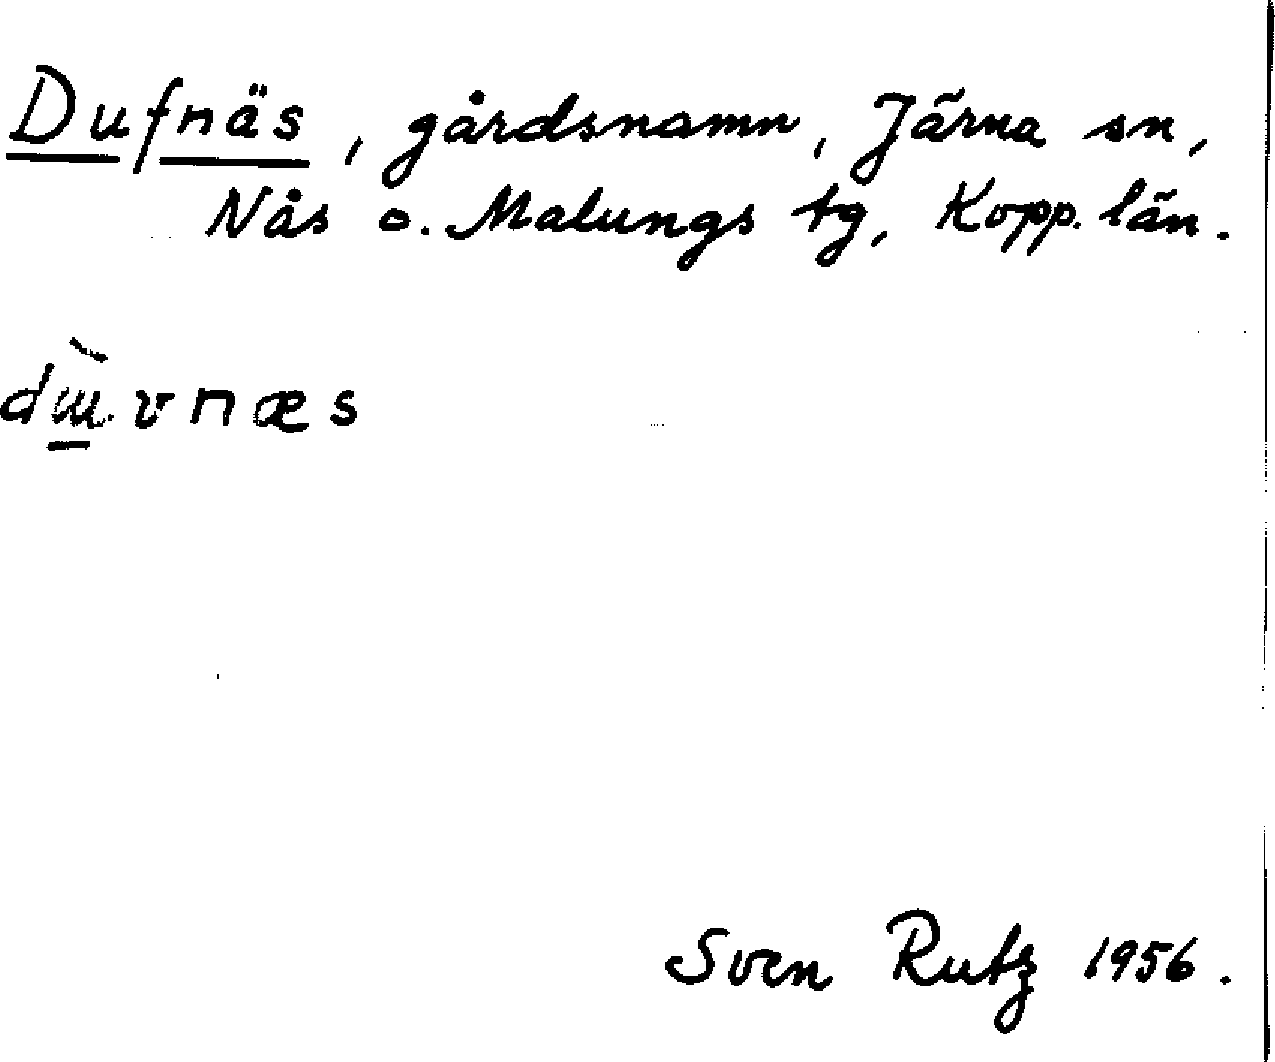 Dufnäs, gårdsnamn, Järna sn,
Nås o. Malungs tg, Kopp. län.
dɯ̀.vnæs
Sven Rutz 1956.